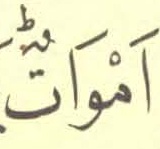 اَمْوَاتٌؕ